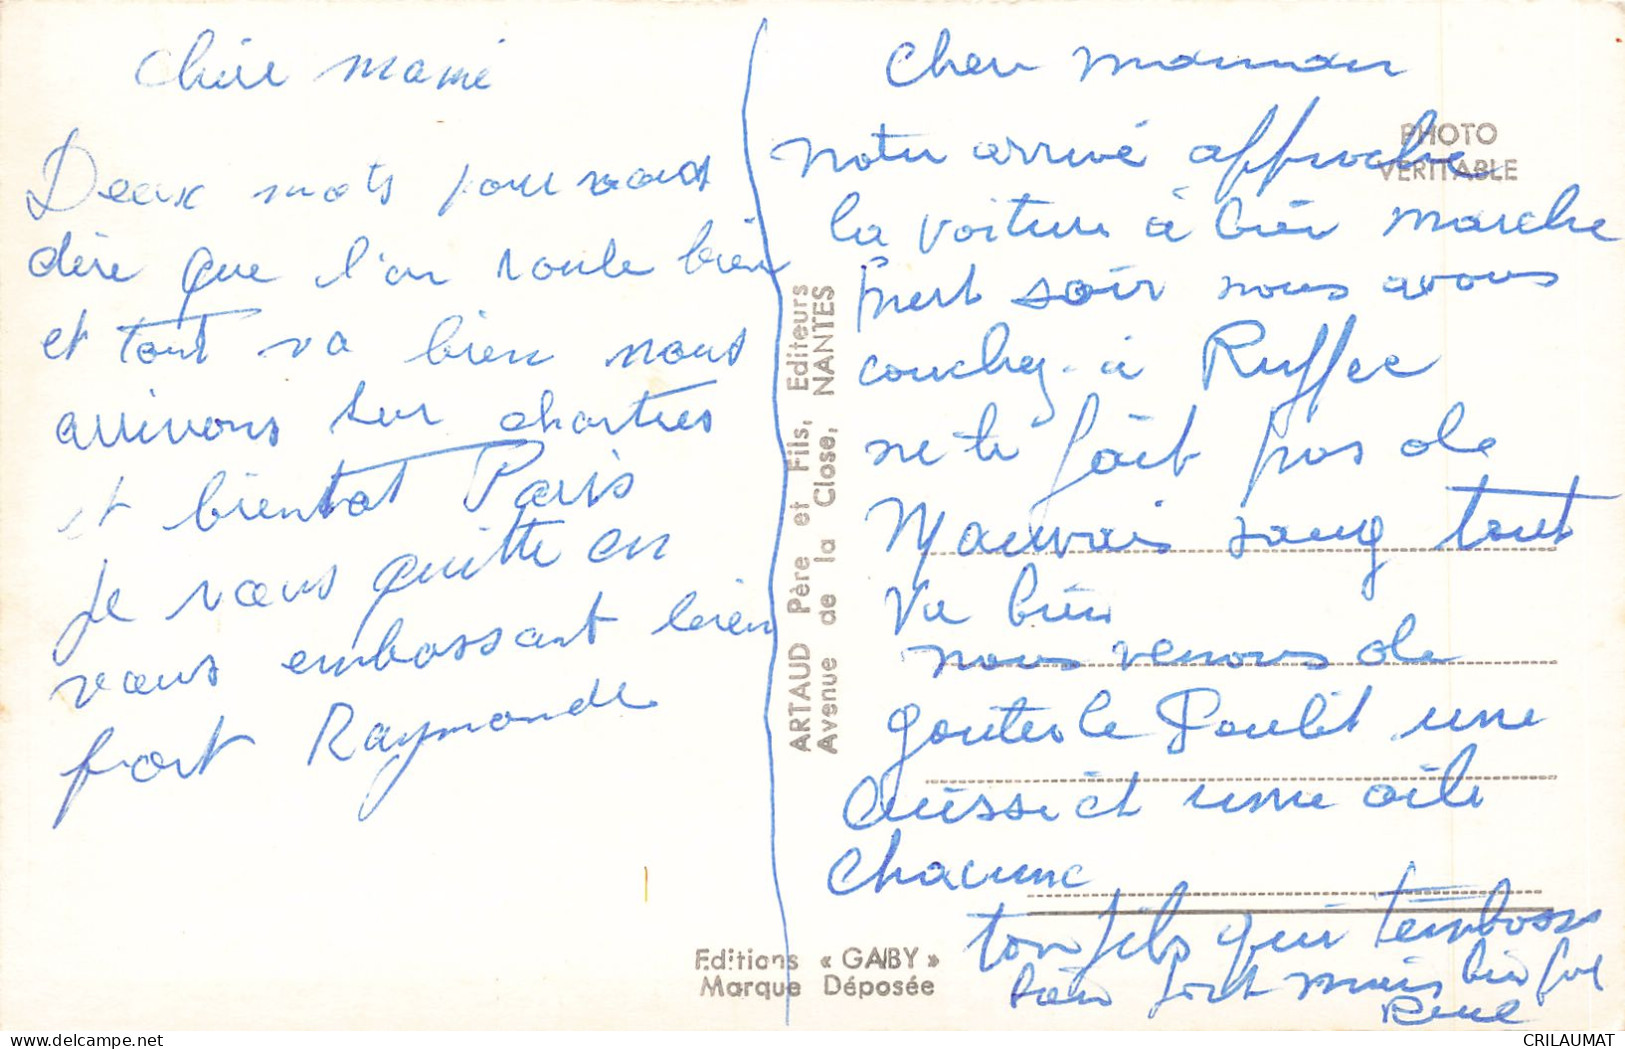 Chère mamie
Deux mots pour vous
dire que l'on roule bien
et tout va bien nous
arrivons sur chartres
et bientot Paris
je vous quitte en
vous embassant bien
fort Raymonde
ARTAUD Père et Fils, Editeurs
Avenue de la Close, NANTES
Editions « GABY »
Marque Déposée
PHOTO
VERITABLE
Cher maman
notre arrivé approche
la voiture à bien marche
soir nous avous
couchez à Ruffec
ne te fait pas de
Mauvais sang tout
va bien
nous venons de
gouter le Poulet une
cuisse et une aile
chacune
ton fils qui t'embass
bien fort mais bien fort
René
CRILAUMAT